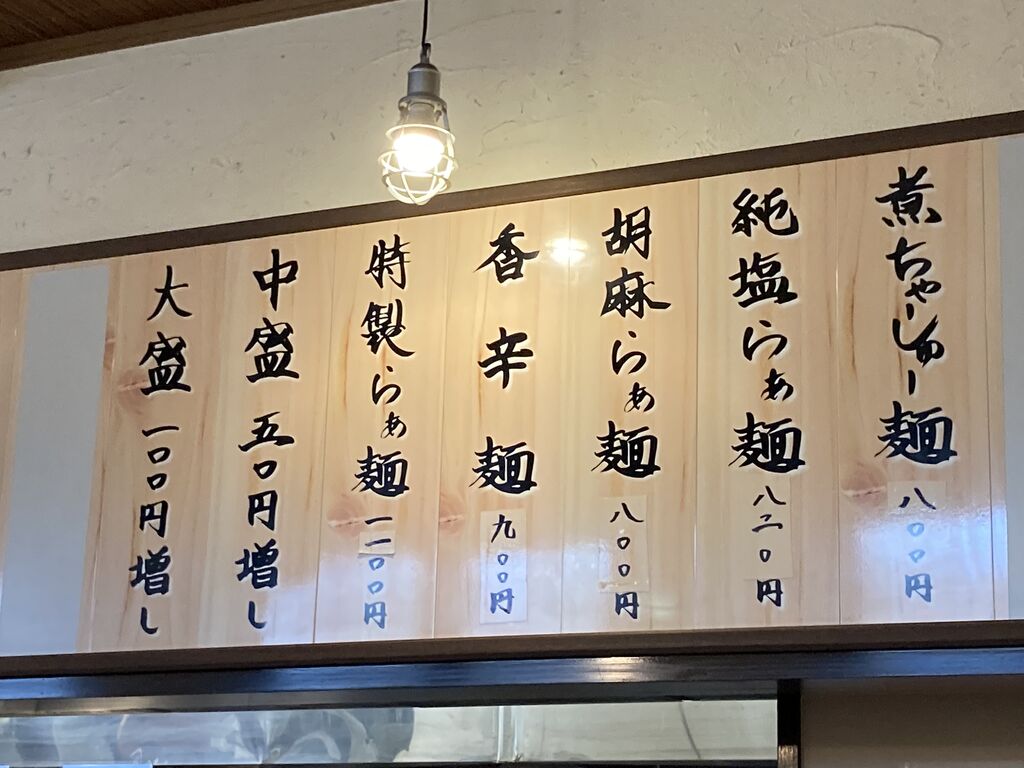 煮ちゃーしゅー麺 八〇〇円
純塩らぁ麺 八二〇円
胡麻らぁ麺 八〇〇円
香辛麺 九〇〇円
特製らぁ麺 一一〇〇円
中盛 五〇円増し
大盛 一〇〇円増し